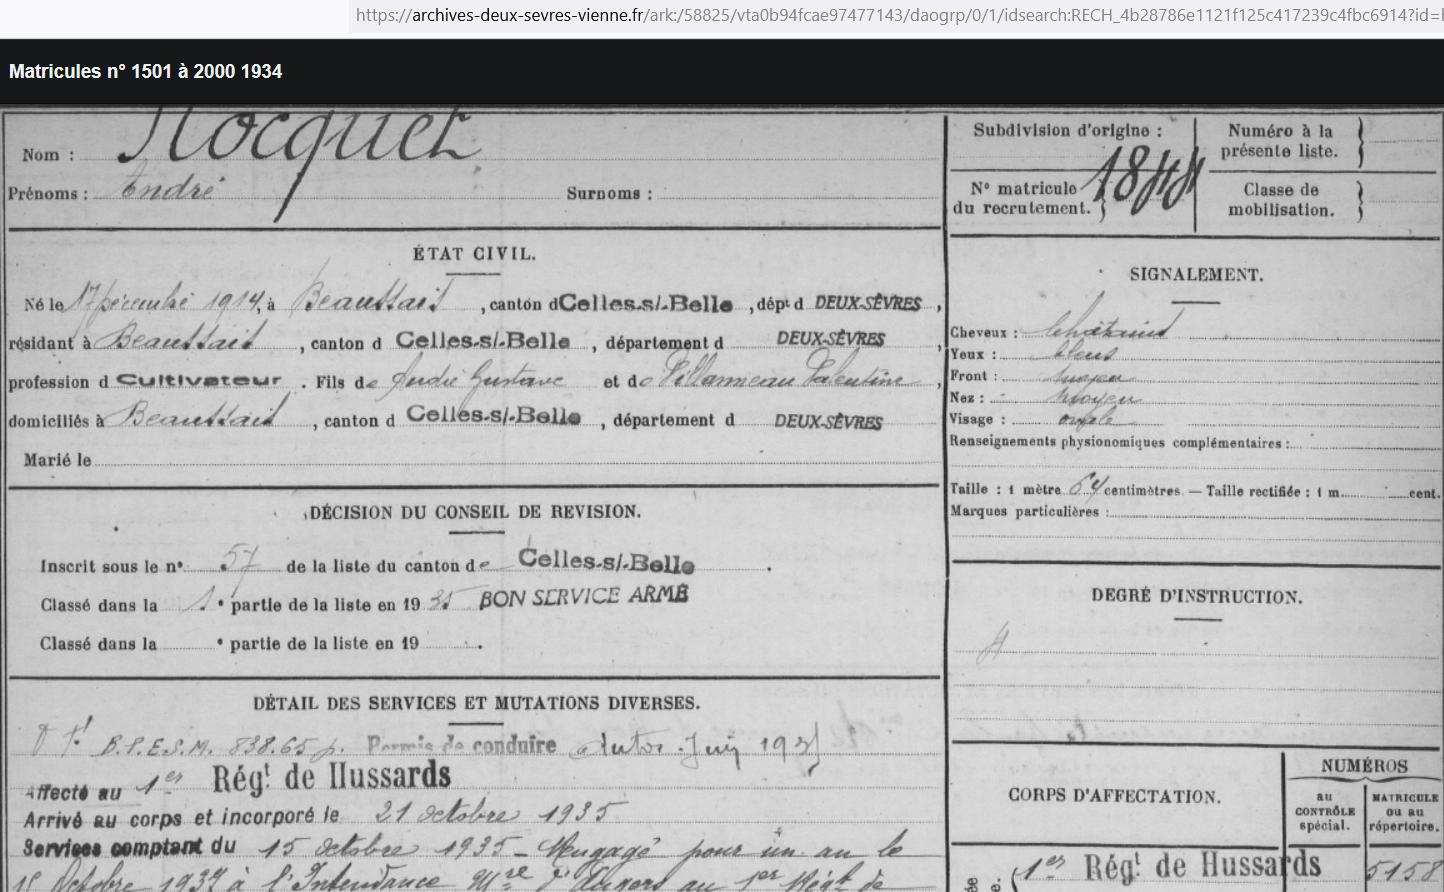 https://archives-deux-sevres-vienne.fr/ark:/58825/vta0b94fcae97477143/daogrp/0/1/idsearch:RECH_4b28786e1121f125c417239c4fbc6914?id=h
Matricules n° 1501 à 2000 1934
Nom : Nocquet
Prénoms : André Surnoms :
Subdivision d'origine :
Numéro à la présente liste.
N° matricule du recrutement. 1844
Classe de mobilisation.
ÉTAT CIVIL.
Né le 17 Décembre 1914, à Beaussais, canton d Celles-s/-Belle, dépt d DEUX-SÈVRES,
résidant à Beaussais, canton d Celles-s/-Belle, département d DEUX-SÈVRES,
profession d Cultivateur. Fils de André Gustave et de Villanneau Valentine,
domiciliés à Beaussais, canton d Celles-s/-Belle, département d DEUX-SÈVRES
Marié le
SIGNALEMENT.
Cheveux : Châtains
Yeux : bleus
Front : moyen
Nez : moyen
Visage : ovale
Renseignements physionomiques complémentaires :
Taille : 1 mètre 64 centimètres. — Taille rectifiée : 1 m. cent.
Marques particulières :
DÉCISION DU CONSEIL DE REVISION.
Inscrit sous le n° 57 de la liste du canton de Celles-s/-Belle.
Classé dans la 1e partie de la liste en 1935 BON SERVICE ARMÉ
Classé dans la e partie de la liste en 19 .
DEGRÉ D'INSTRUCTION.
DÉTAIL DES SERVICES ET MUTATIONS DIVERSES.
B.P.E.S.M. 838.65 p. Permis de conduire Autos Juin 193
Affecté au 1er Régt de Hussards
Arrivé au corps et incorporé le 21 octobre 1935
Services comptant du 15 octobre 1935 – Rengagé pour un an le
15 Octobre 1937 à l'Intendance Mre d'Angers au 1er Régt de
CORPS D'AFFECTATION.
NUMÉROS
au CONTRÔLE spécial.
MATRICULE ou au répertoire.
1er Régt de Hussards 5158